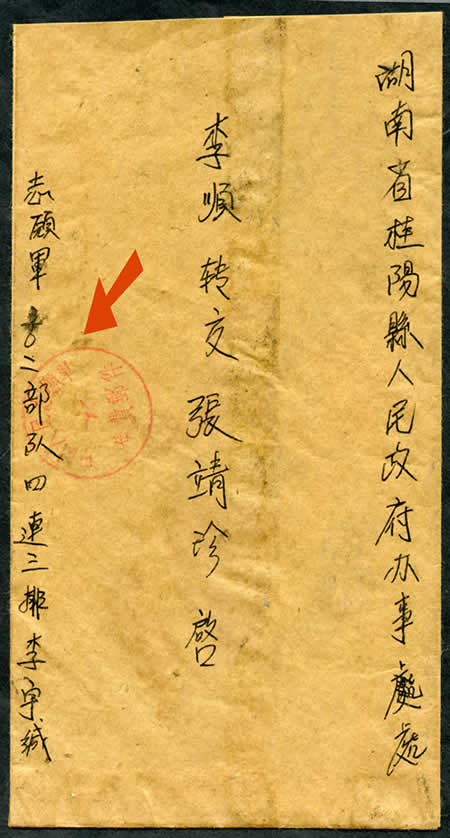 湖南省桂陽縣人民政府办事處處
李順转交張靖珍啟
志願軍 〇二部队四連三排李宇緘